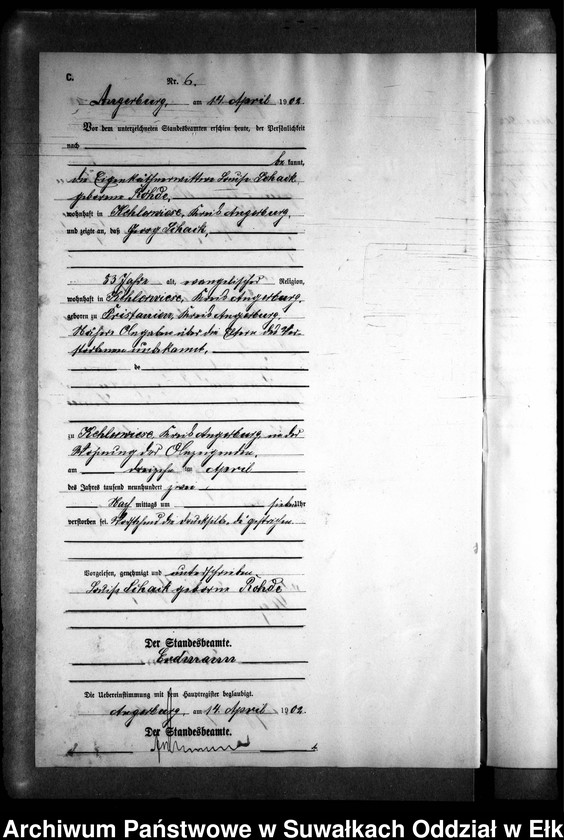 C.
Nr. 6.
Angerburg, am 14 April 1902.
Vor dem unterzeichneten Standesbeamten erschien heute, der Persönlichkeit
nach
be kannt,
die Eigenkäthnerwittwe Louise Schack
geborene Rohde,
wohnhaft in Kehlerwiese, Kreis Angerburg,
und zeigte an, daß Georg Schack,
83 Jahre alt, evangelischer Religion,
wohnhaft in Kehlerwiese, Kreis Angerburg,
geboren zu Kreis Angerburg,
Nähere Angaben über die Eltern des Ver-
storbenen unbekannt,
de
zu Kehlerwiese, Kreis Angerburg in der
Wohnung der Anzeigenden,
am dreizehn ten April
des Jahres tausend neunhundert zwei
Nach mittags um sieben Uhr
verstorben sei. Vorstehend die Druckselbe, di gestrichen.
Vorgelesen, genehmigt und unterschrieben
Louise Schack geborne Rohde
Der Standesbeamte.
Erdmann
Die Uebereinstimmung mit dem Hauptregister beglaubigt.
Angerburg, am 14 April 1902.
Der Standesbeamte.
Archiwum Państwowe w Suwałkach Oddział w Ełk